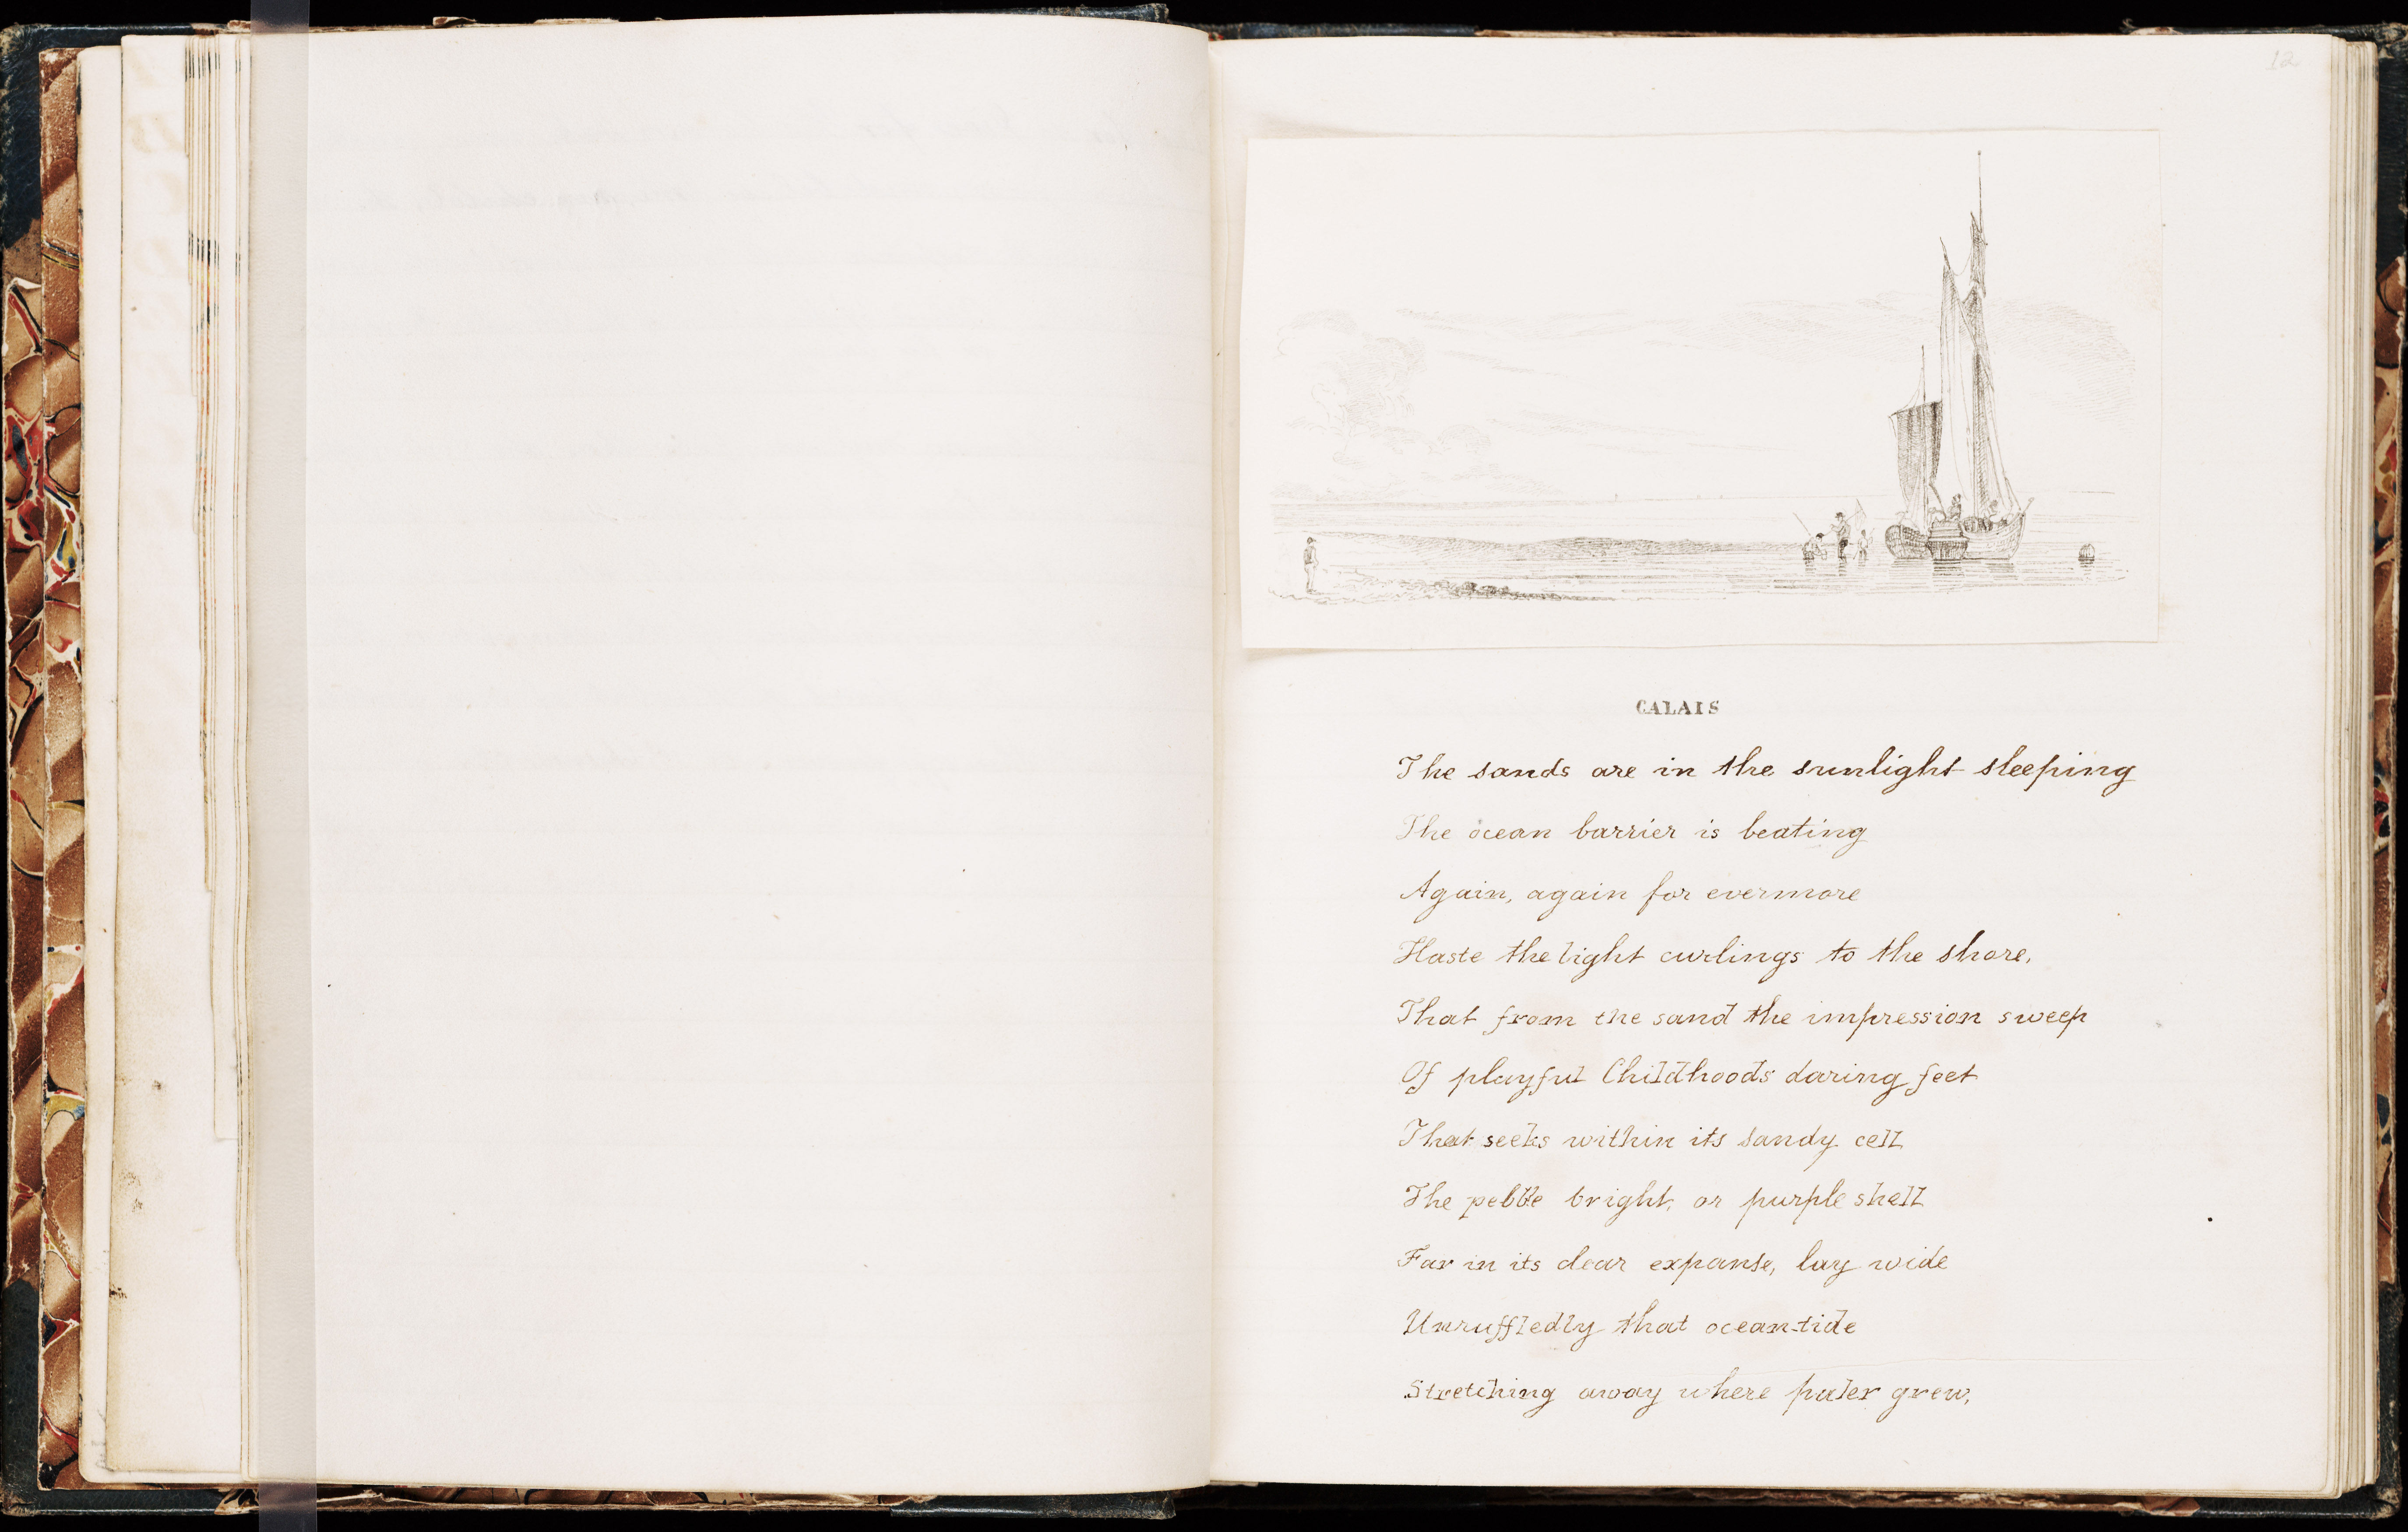 12
CALAIS
The sands are in the sunlight sleeping
The ocean barrier is beating
Again, again for evermore
Haste the light curlings to the shore,
That from the sand the impression sweep
Of playful Childhoods daring feet
That seeks within its sandy cell
The pebble bright, or purple shell
Far in its clear expanse, lay wide
Unruffledly that ocean-tide
Stretching away where paler grew,